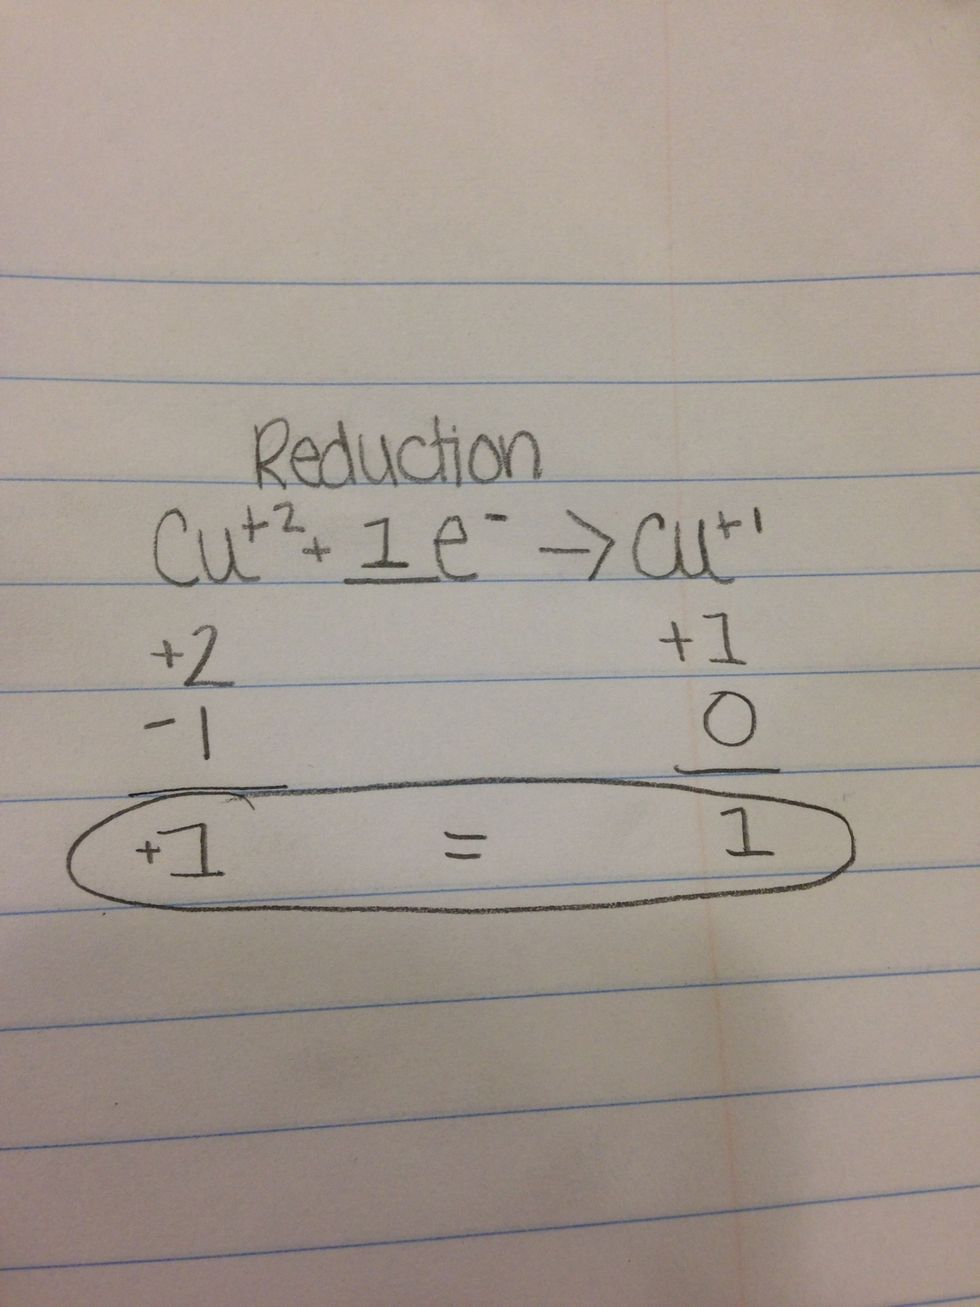 Reduction
Cu⁺² + 1 e⁻ → Cu⁺¹
+2 +1
-1 0
+1 = 1